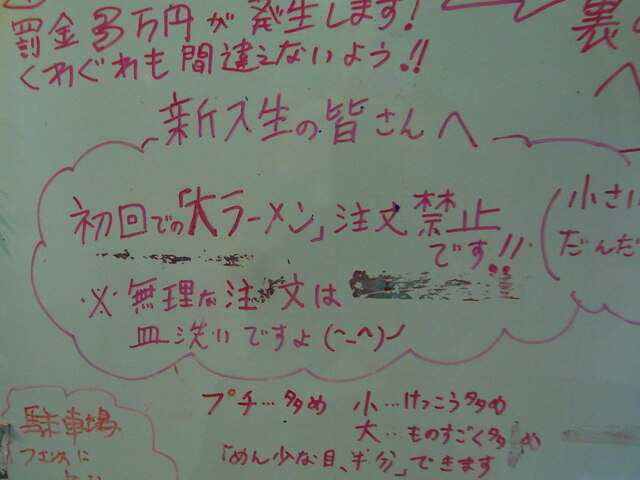 罰金3万円が発生します!
くれぐれも間違えないよう!!
裏
へ
新入生の皆さんへ
初回での「大ラーメン」注文禁止
です!!
(小さい
だんだ
※無理な注文は
皿洗いですよ(^-^)ノ
駐車場
フェンスに
プチ…多め 小…けっこう多め
大…ものすごく多め
「めん少な目、半分」できます